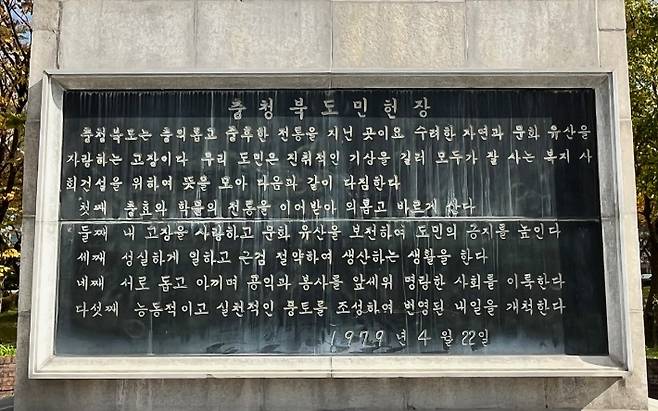 충청북도민헌장
충청북도는 충의롭고 중후한 전통을 지닌 곳이요 수려한 자연과 문화 유산을
자랑하는 고장이다 우리 도민은 진취적인 기상을 길러 모두가 잘 사는 복지 사
회건설을 위하여 뜻을 모아 다음과 같이 다짐한다
첫째 충효와 학문의 전통을 이어받아 의롭고 바르게 산다
둘째 내 고장을 사랑하고 문화 유산을 보전하여 도민의 긍지를 높인다
세째 성실하게 일하고 근검 절약하여 생산하는 생활을 한다
네째 서로 돕고 아끼며 공익과 봉사를 앞세워 명랑한 사회를 이룩한다
다섯째 능동적이고 실천적인 풍토를 조성하여 번영된 내일을 개척한다
1979 년 4 월 22 일